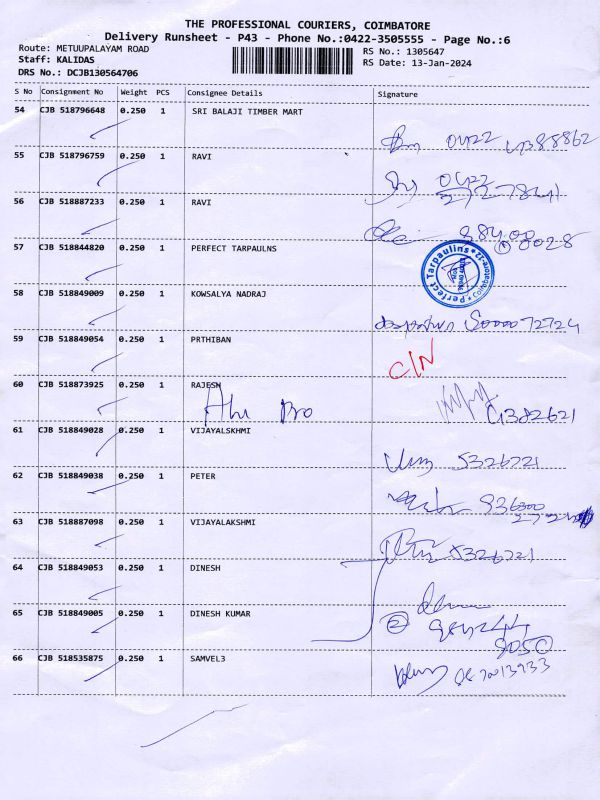 THE PROFESSIONAL COURIERS, COIMBATORE
Delivery Runsheet - P43 - Phone No.:0422-3505555 - Page No.:6
Route: METUUPALAYAM ROAD
RS No.: 1305647
Staff: KALIDAS
RS Date: 13-Jan-2024
DRS No.: DCJB130564706
S No Consignment No Weight PCS Consignee Details Signature
54 CJB 518796648 0.250 1 SRI BALAJI TIMBER MART
55 CJB 518796759 0.250 1 RAVI
56 CJB 518887233 0.250 1 RAVI
57 CJB 518844820 0.250 1 PERFECT TARPAULNS
Perfect Tarpaulins
58 CJB 518849009 0.250 1 KOWSALYA NADRAJ
59 CJB 518849054 0.250 1 PRTHIBAN
C/N
60 CJB 518873925 0.250 1 RAJESH
61 CJB 518849028 0.250 1 VIJAYALSKHMI
5326721
62 CJB 518849038 0.250 1 PETER
63 CJB 518887098 0.250 1 VIJAYALAKSHMI
5326721
64 CJB 518849053 0.250 1 DINESH
65 CJB 518849005 0.250 1 DINESH KUMAR
66 CJB 518535875 0.250 1 SAMVEL3